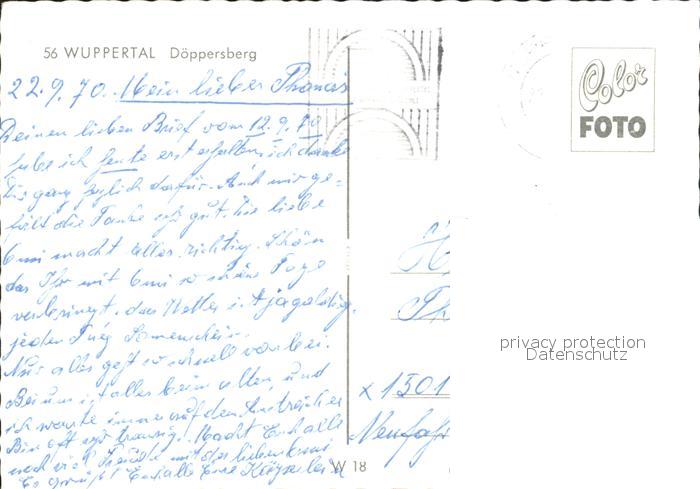 56 WUPPERTAL Döppersberg
22.9.70. Mein lieber Thomas
Deinen lieben Brief vom 12.9.70
habe ich heute erst erhalten, ich danke
Dir ganz herzlich dafür. Auch mir ge-
fällt die Tante sehr gut. Die liebe
Omi macht alles richtig. Schön
das Ihr mit Omi so schöne Tage
verbringt, das Wetter ist ja goldig,
jeden Tag Sonnenschein.
Nur alles geht so schnell vorbei.
Bei uns ist alles beim alten, und
ich warte immer auf den
Bin oft sehr traurig. Macht Euch alle
noch viel Freude mit der lieben Omi
Es grüßt Euch alle Eure
Color
FOTO
Th
x 1501
Neufah
W 18
privacy protection
Datenschutz